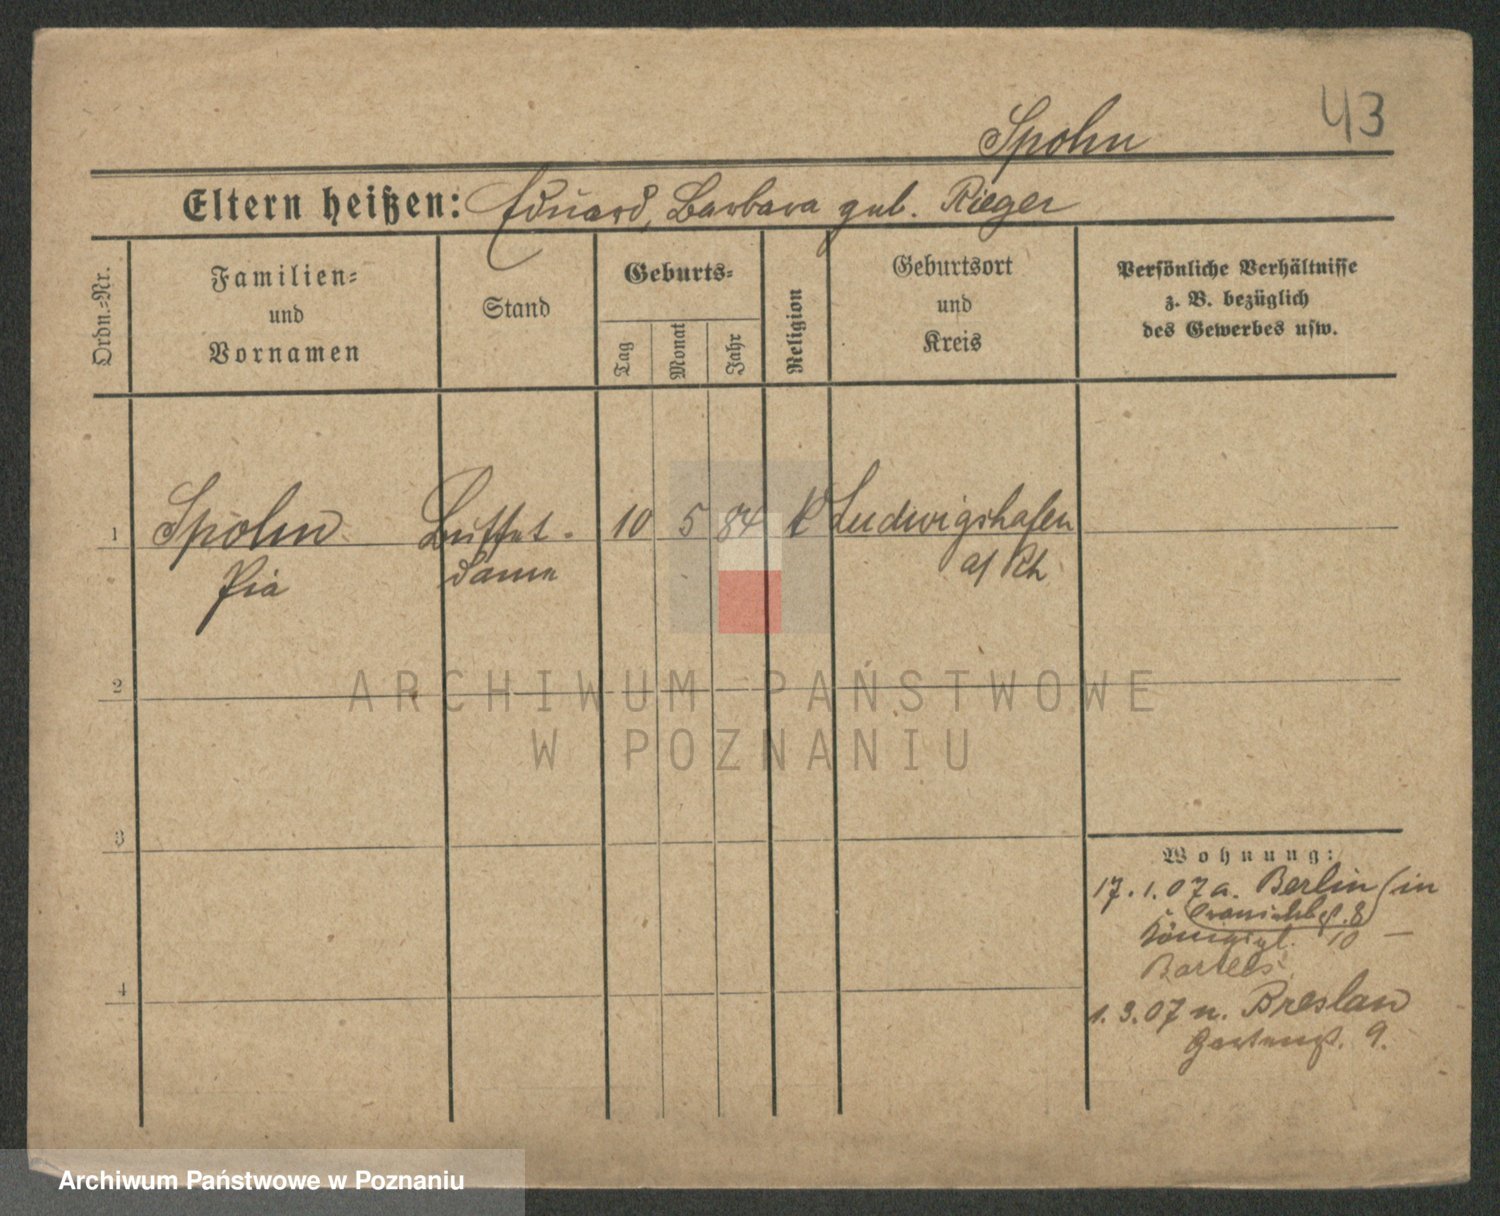 43
Spohn
Eltern heißen: Eduard, Barbara geb. Rieger
Ordn.-Nr.
Familien-
und
Vornamen
Stand
Geburts-
Tag
Monat
Jahr
Religion
Geburtsort
und
Kreis
Persönliche Verhältnisse
z. B. bezüglich
des Gewerbes usw.
1 Spohn Buffet- 10 5 84 K Ludwigshafen
Pia dame a/ Rh
2
3
4
ARCHIWUM PAŃSTWOWE
W POZNANIU
Wohnung:
17.1.07 a. Berlin (in
8)
Königspl. 10 —
Bartels
1.3.07 n. Breslau
Gartenst. 9.
Archiwum Państwowe w Poznaniu